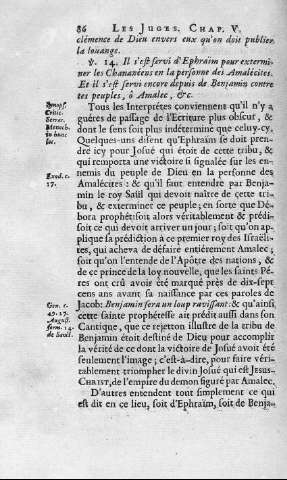 86 LES JUGES, CHAP. V.
clémence de Dieu envers eux qu'on doit publier
la louange.
℣. 14. Il s'est servi d'Ephraïm pour extermi-
ner les Chananéens en la personne des Amalécites.
Et il s'est servi encore depuis de Benjamin contre
tes peuples, ô Amalec, &c.
Synops.
Critic.
Serrar.
Menoch.
in hunc
loc.
Tous les Interprétes conviennent qu'il n'y a
guéres de passage de l'Ecriture plus obscur, &
dont le sens soit plus indéterminé que celuy-cy.
Quelques-uns disent qu'Ephraïm se doit pren-
dre icy pour Josué qui étoit de cette tribu, &
qui remporta une victoire si signalée sur les en-
nemis du peuple de Dieu en la personne des
Exod. c.
17.
Amalécites : & qu'il faut entendre par Benja-
min le roy Saül qui devoit naître de cette tri-
bu, & exterminer ce peuple; en sorte que Dé-
bora prophétisoit alors véritablement & prédi-
soit ce qui devoit arriver un jour; soit qu'on ap-
plique sa prédiction à ce premier roy des Israéli-
tes, qui acheva de défaire entiérement Amalec;
soit qu'on l'entende de l'Apôtre des nations, &
de ce prince de la loy nouvelle, que les saints Pé-
res ont crû avoir été marqué prés de dix-sept
cens ans avant sa naissance par ces paroles de
Gen. c.
49. 27.
August.
serm. 14.
de Sanct.
Jacob: Benjamin sera un loup ravissant: & qu'ainsi
cette sainte prophétesse ait prédit aussi dans son
Cantique, que ce rejetton illustre de la tribu de
Benjamin étoit destiné de Dieu pour accomplir
la vérité de ce dont la victoire de Josué avoit été
seulement l'image; c'est-à-dire, pour faire véri-
tablement triompher le divin Josué qui est JESUS-
CHRIST, de l'empire du démon figuré par Amalec.
D'autres entendent tout simplement ce qui
est dit en ce lieu, soit d'Ephraïm, soit de Benja-